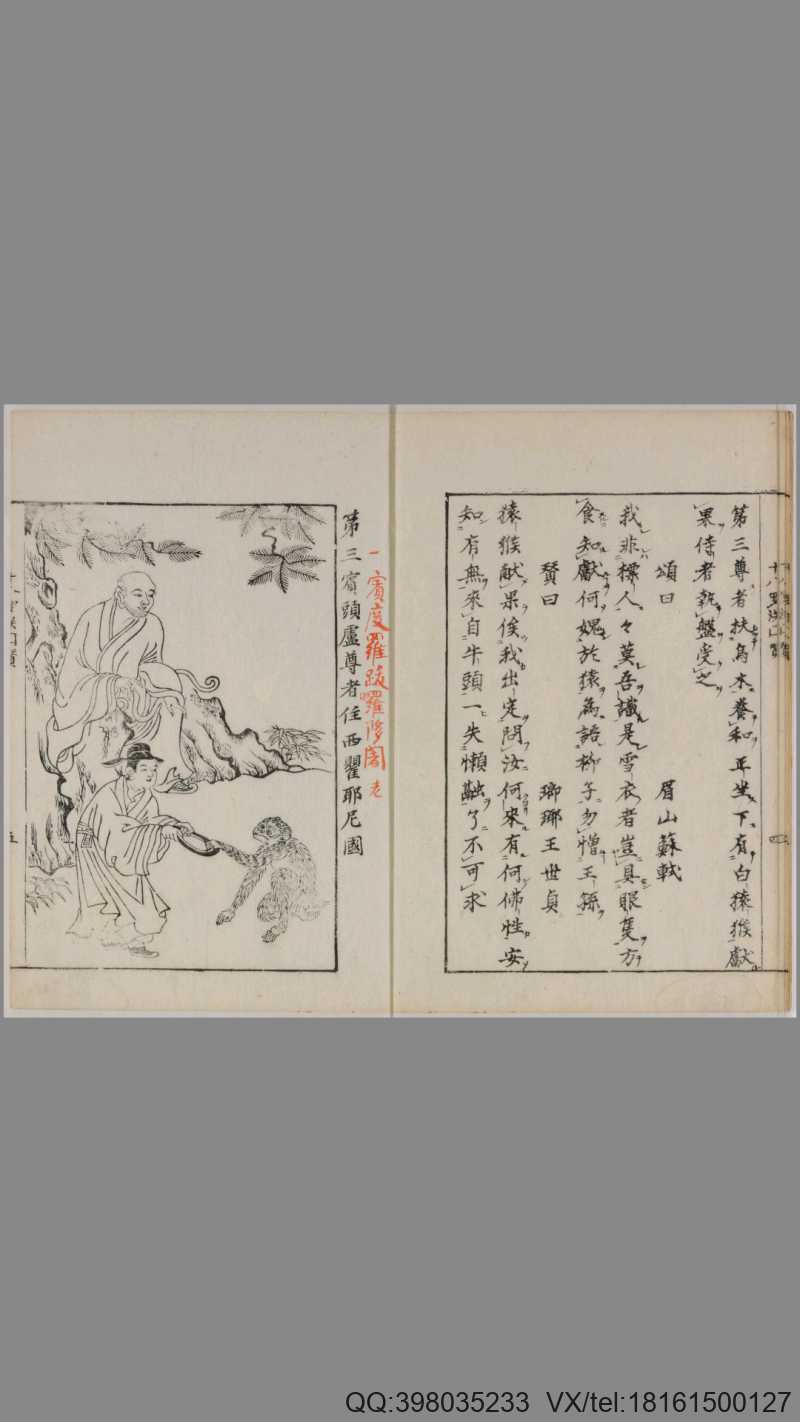 第三尊者扶烏木養和正坐下有白猿猴獻
果侍者執盤受之
頌曰　眉山蘇軾
我非標人々莫吾識是雪衣者豈具眼隻方
食知獻何愧於猿為語柳子勿憎王孫
贊曰　瑯琊王世貞
猿猴献果俟我出定問汝何來有何佛性安
知有無來自牛頭一失懶融了不可求
一賓度羅跋羅惰闍
第三賓頭盧尊者住西瞿耶尼國
QQ:398035233 VX/tel:18161500127